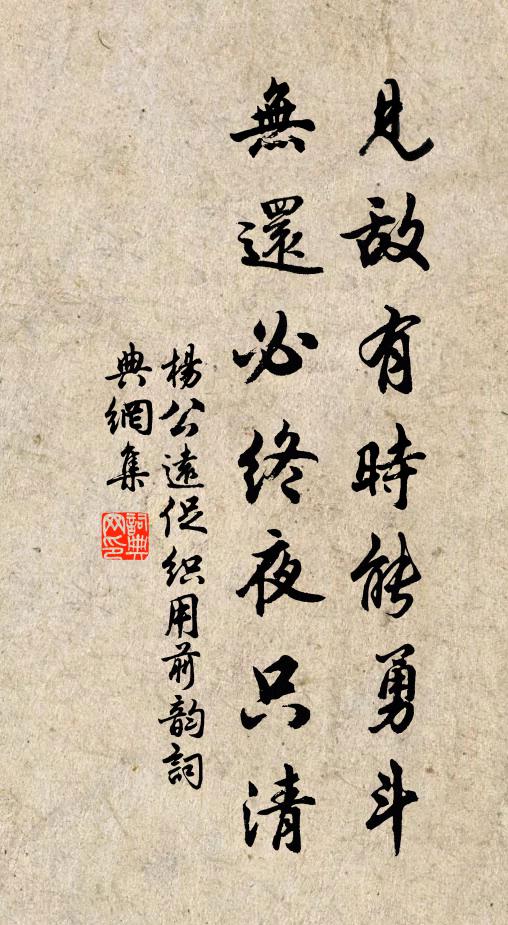 見敌有時能勇斗
無還必終夜只清
楊公遠促织用前韵詞
典網集
詞典
网印